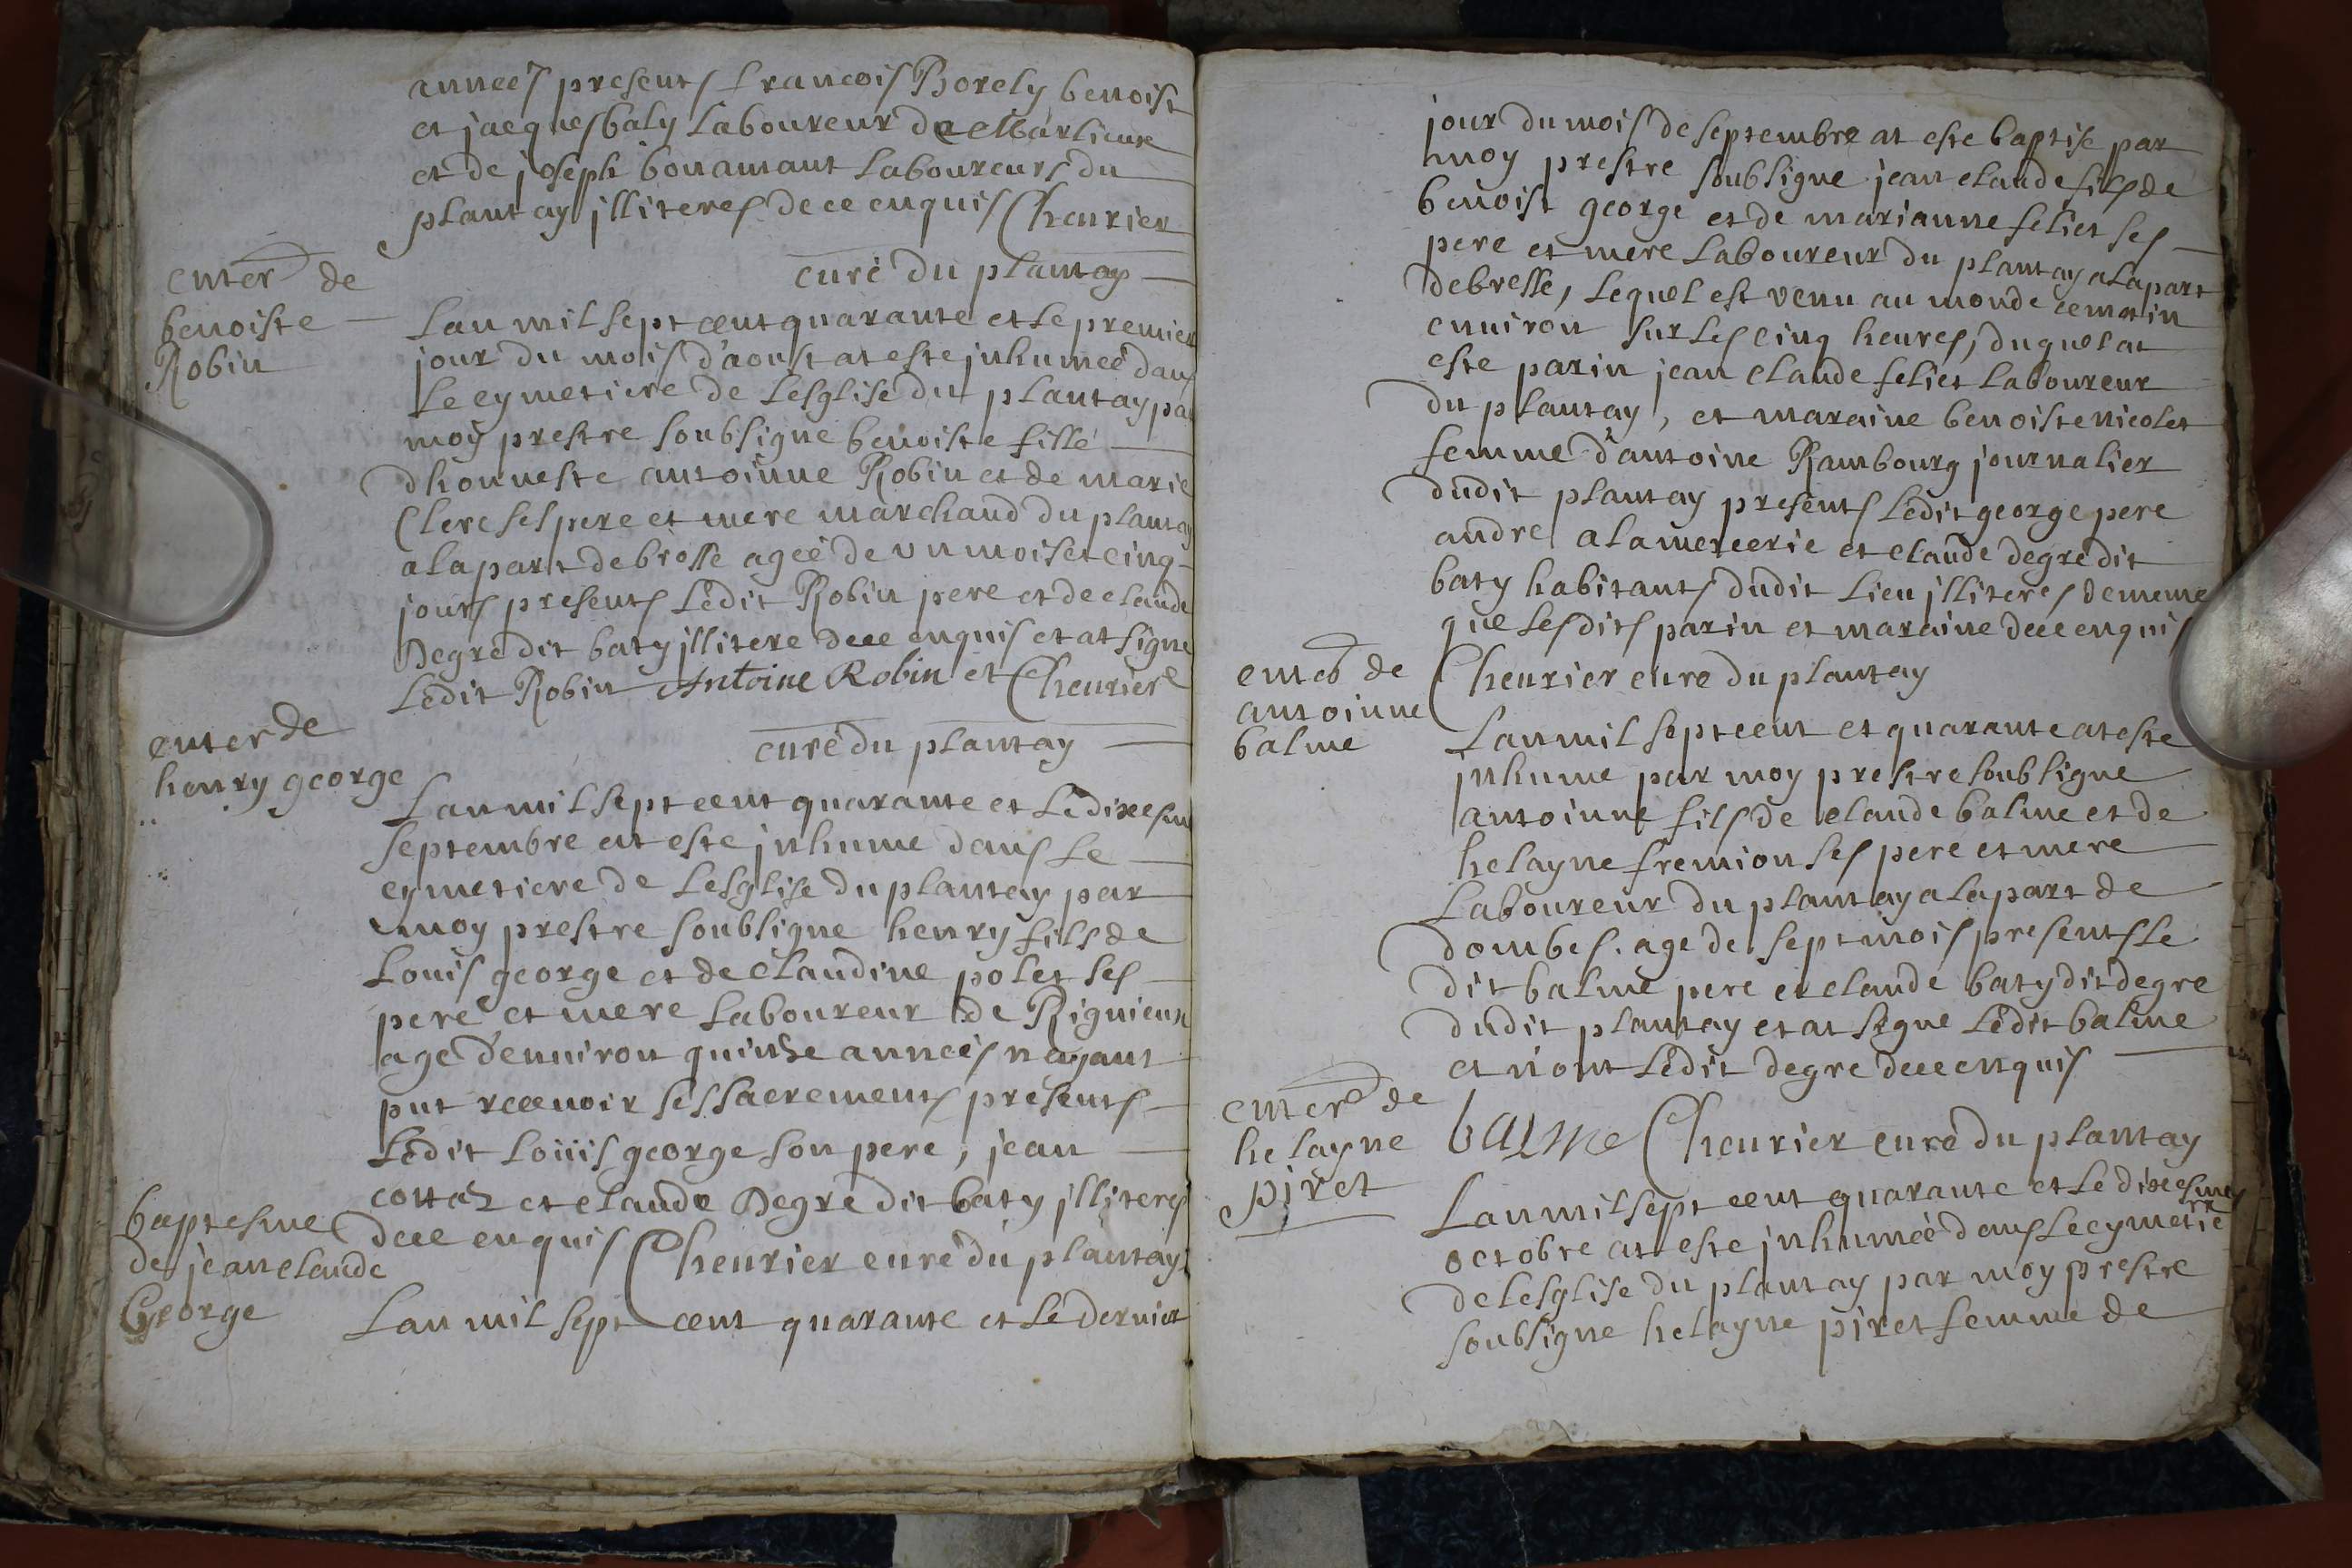 anneés presents francois Borely benoist
et jacques baly laboureur de Marlieux
et de joseph bonamant laboureurs du
plantay jlliteres de ce enquis Cheurier
curé du plantay
enterr de
benoiste
Robin
Lan mil sept cent quarante et le premier
jour du mois d'aoust at este jnhumeé dans
le cymetiere de lesglise du plantay par
moy prestre soubsigne benoiste fille
dhonneste antoinne Robin et de marie
Clerc ses pere et mere marchand du plantay
a la part de bresse ageé de un mois et cinq
jours presents ledit Robin pere et de claude
Degre dit baty jllitere de ce enquis et at signe
ledit Robin Antoine Robin et Cheurier
curé du plantay
enter de
henry george
Lan mil sept cent quarante et le dixesme
septembre at este jnhume dans le
cymetiere de lesglise du plantay par
moy prestre soubsigne henry fils de
Louis george et de Claudine polet ses
pere et mere laboureur de Rignieux
age d'enuiron quinze anneés nayant
put receuoir ses sacrements presents
ledit Loüis george son pere, jean
cottaz et claude Degre dit baty jlliteres
de ce enquis Cheurier curé du plantay
baptesme
de jean claude
George
Lan mil sept cent quarante et le dernier
jour du mois de septembre at este baptise par
moy prestre soubsigne jean claude fils de
benoist george et de marianne feliet ses
pere et mere laboureur du plantay a la part
de bresse, lequel est venu au monde ce matin
enuiron sur les cinq heures, duquel at
este parin jean claude feliet laboureur
du plantay, et maraine benoiste nicolet
femme d'antoine Rambourg journalier
dudit plantay presents ledit george pere
andre alamercerie et claude degre dit
baty habitants dudit lieu jlliteres de meme
que lesdits parin et maraine de ce enquis
Cheurier cure du plantay
enter de
antoinne
balme
Lan mil sept cent et quarante at este
jnhume par moy prestre soubsigne
antoinne fils de claude balme et de
helayne fremion ses pere et mere
Laboureur du plantay a la part de
dombes. age de sept mois presents le
dit balme pere et claude baty dit degre
dudit plantay et at signe ledit balme
et non ledit degre de ce enquis
balme Cheurier curé du plantay
enterr de
helayne
piret
Lan mil sept cent quarante et le dixesme
octobre at este jnhumeé dans le cymetie rre
de lesglise du plantay par moy prestre
soubsigne helayne piret femme de